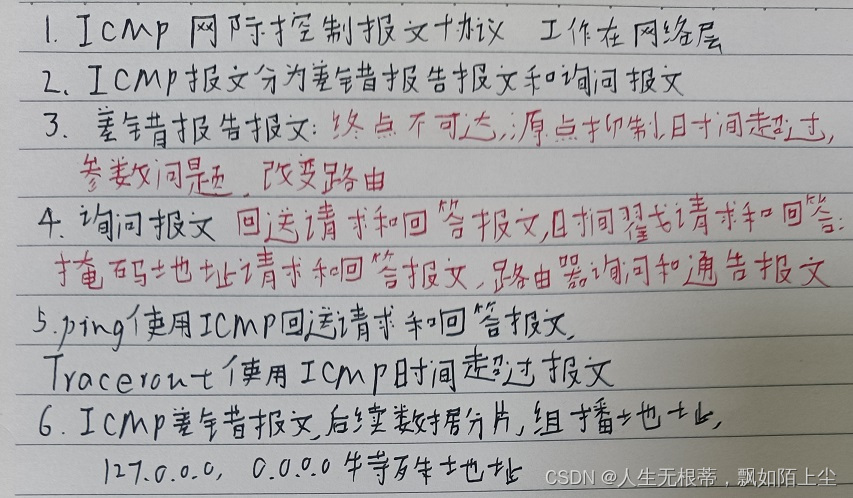 1. ICMP 网际控制报文协议 工作在网络层
2. ICMP报文分为差错报告报文和询问报文
3. 差错报告报文:终点不可达,源点抑制,时间超过,
参数问题,改变路由
4. 询问报文 回送请求和回答报文,时间戳请求和回答;
掩码地址请求和回答报文,路由器询问和通告报文
5.ping使用ICMP回送请求和回答报文,
Tracerout使用ICMP时间超过报文
6. ICMP差错报文,后续数据分片,组播地址,
127.0.0.0, 0.0.0.0 特殊地址
CSDN @人生无根蒂,飘如陌上尘